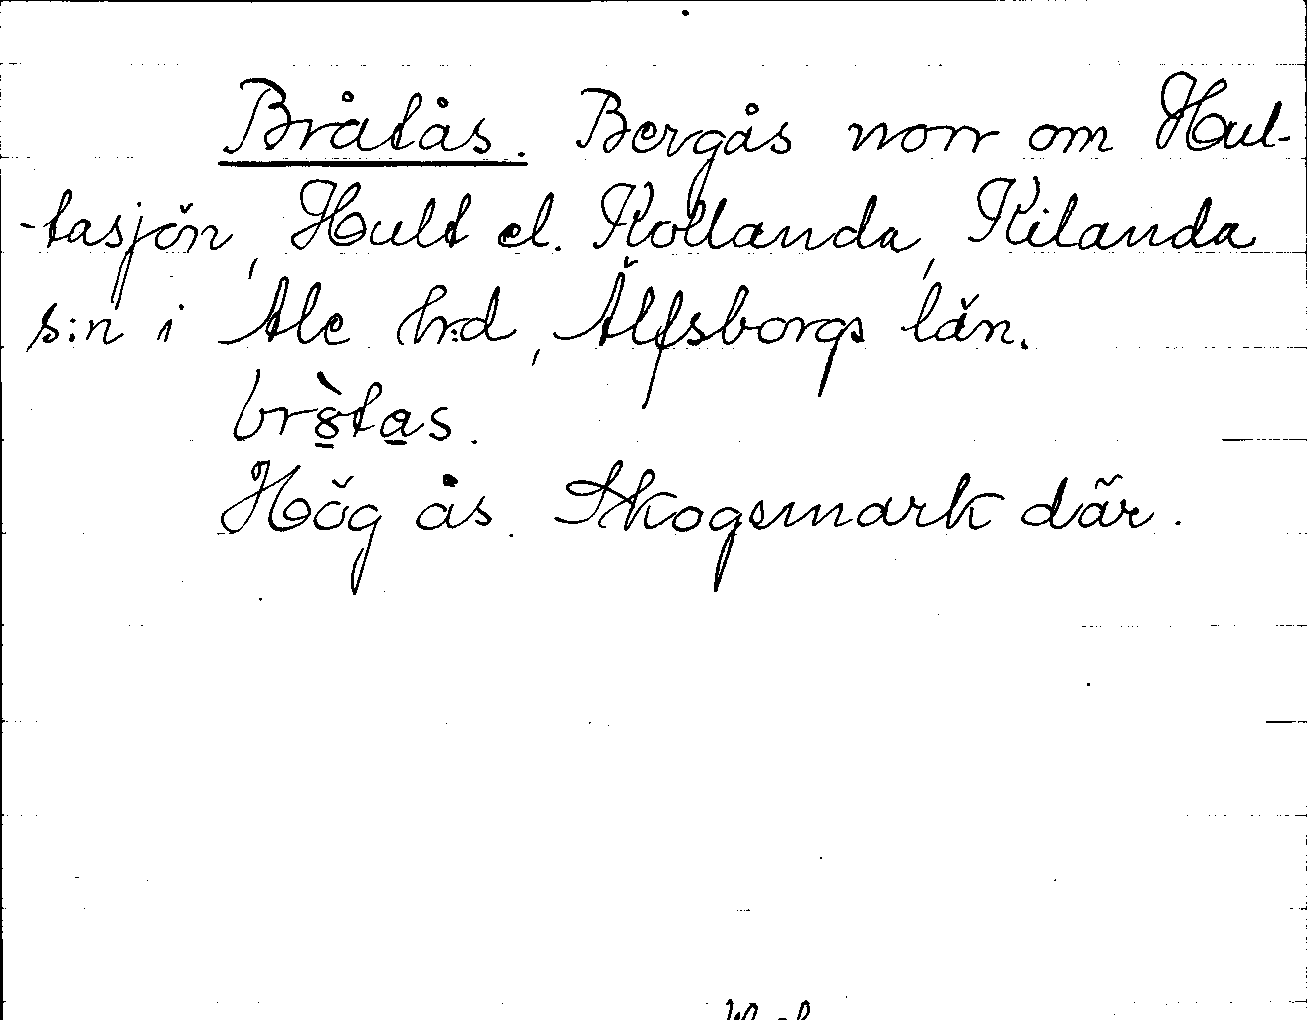 Bråtås. Bergås norr om Hul-
-tasjön, Hult el. Kollanda, Kilanda
s:n i Ale h:d, Älfsborgs län.
Hög ås. Skogsmark där.